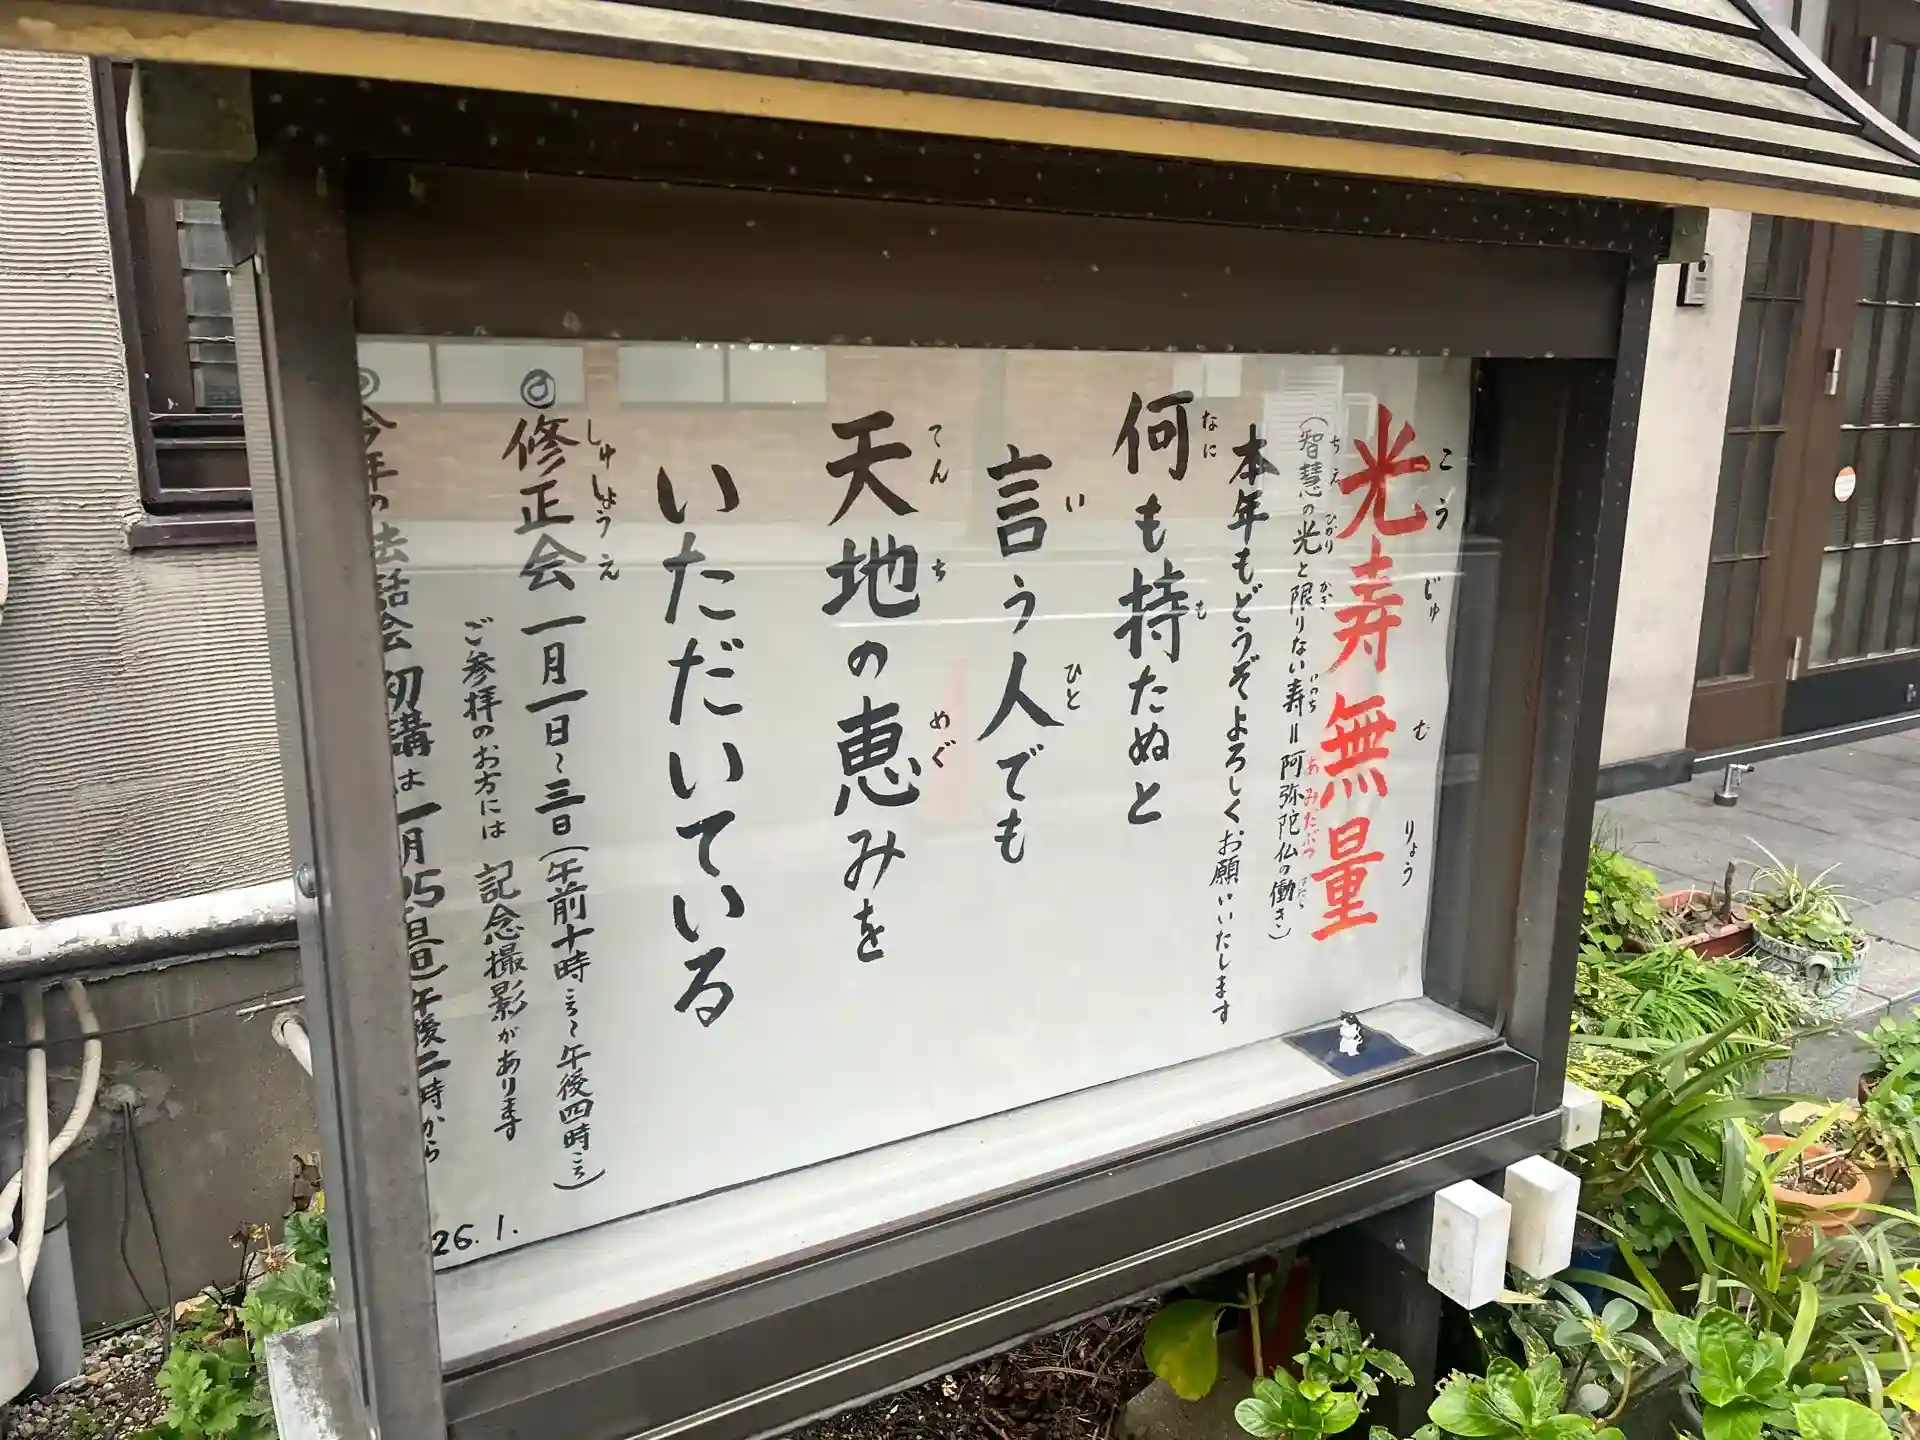 光寿無量
こうじゅむりょう
(智慧の光と限りない寿=阿弥陀仏の働き)
ちえ ひかり かぎ いのち あみだぶつ はたら
本年もどうぞよろしくお願いいたします
何も持たぬと
なに も
言う人でも
い ひと
天地の恵みを
てん ち めぐ
いただいている
◎修正会 一月一日~三日(午前十時ころ~午後四時ころ)
しゅしょうえ
ご参拝のお方には 記念撮影があります
◎今年の法話会 初講は 一月25日(日)午後二時から
26.1.